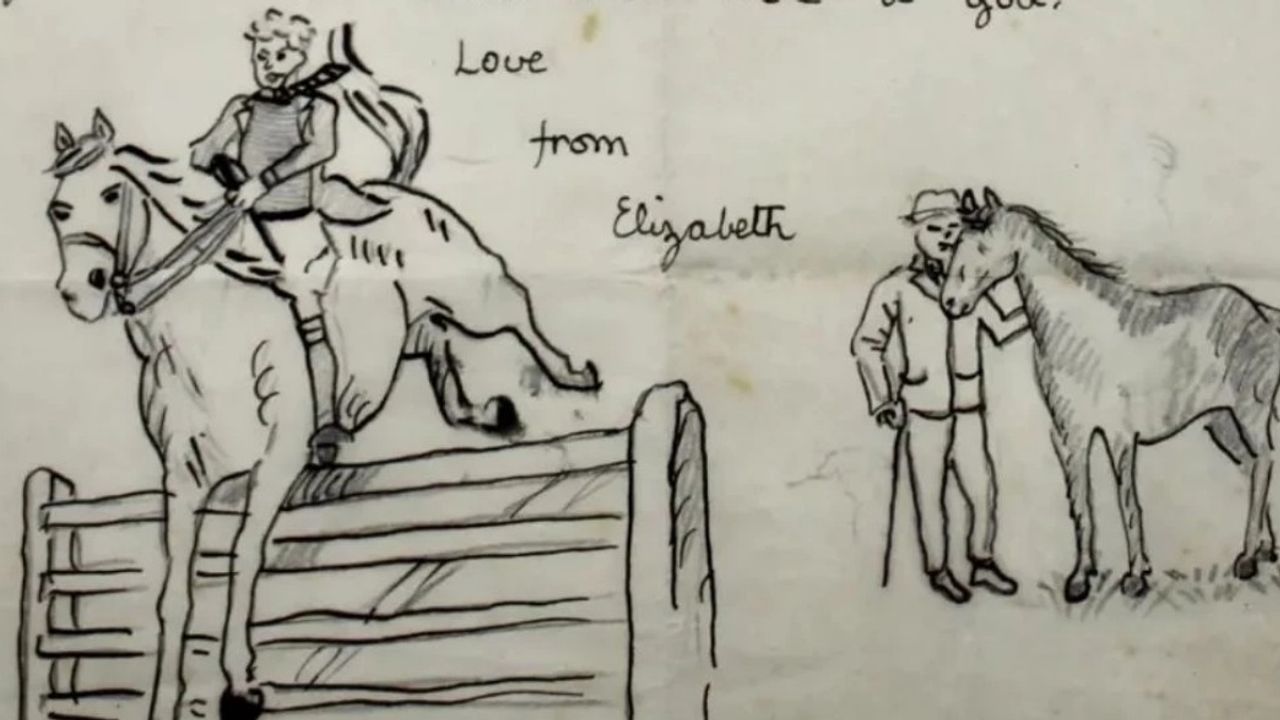 to you.
Love
from
Elizabeth